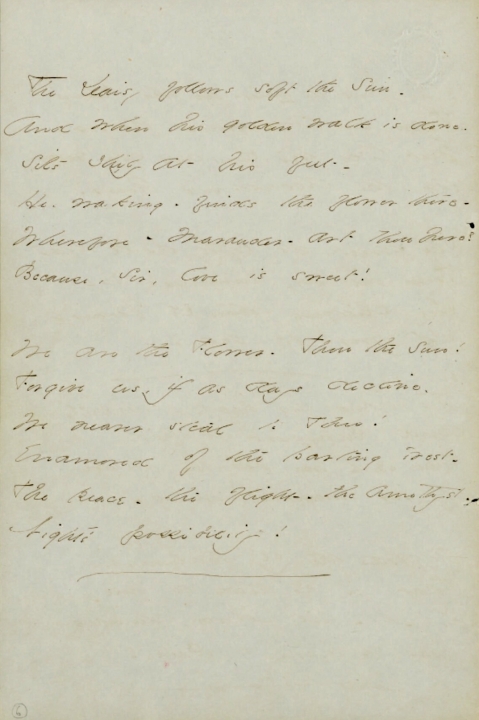 The Daisy follows soft the Sun -
And when his golden walk is done -
Sits shily at his feet -
He - waking - finds the flower there -
Wherefore - Marauder - art thou here?
Because, Sir, love is sweet!
We are the Flower - Thou the Sun!
Forgive us, if as days decline -
We nearer steal to Thee!
Enamored of the parting West -
The peace - the flight - the Amethyst -
Night's possibility!
6